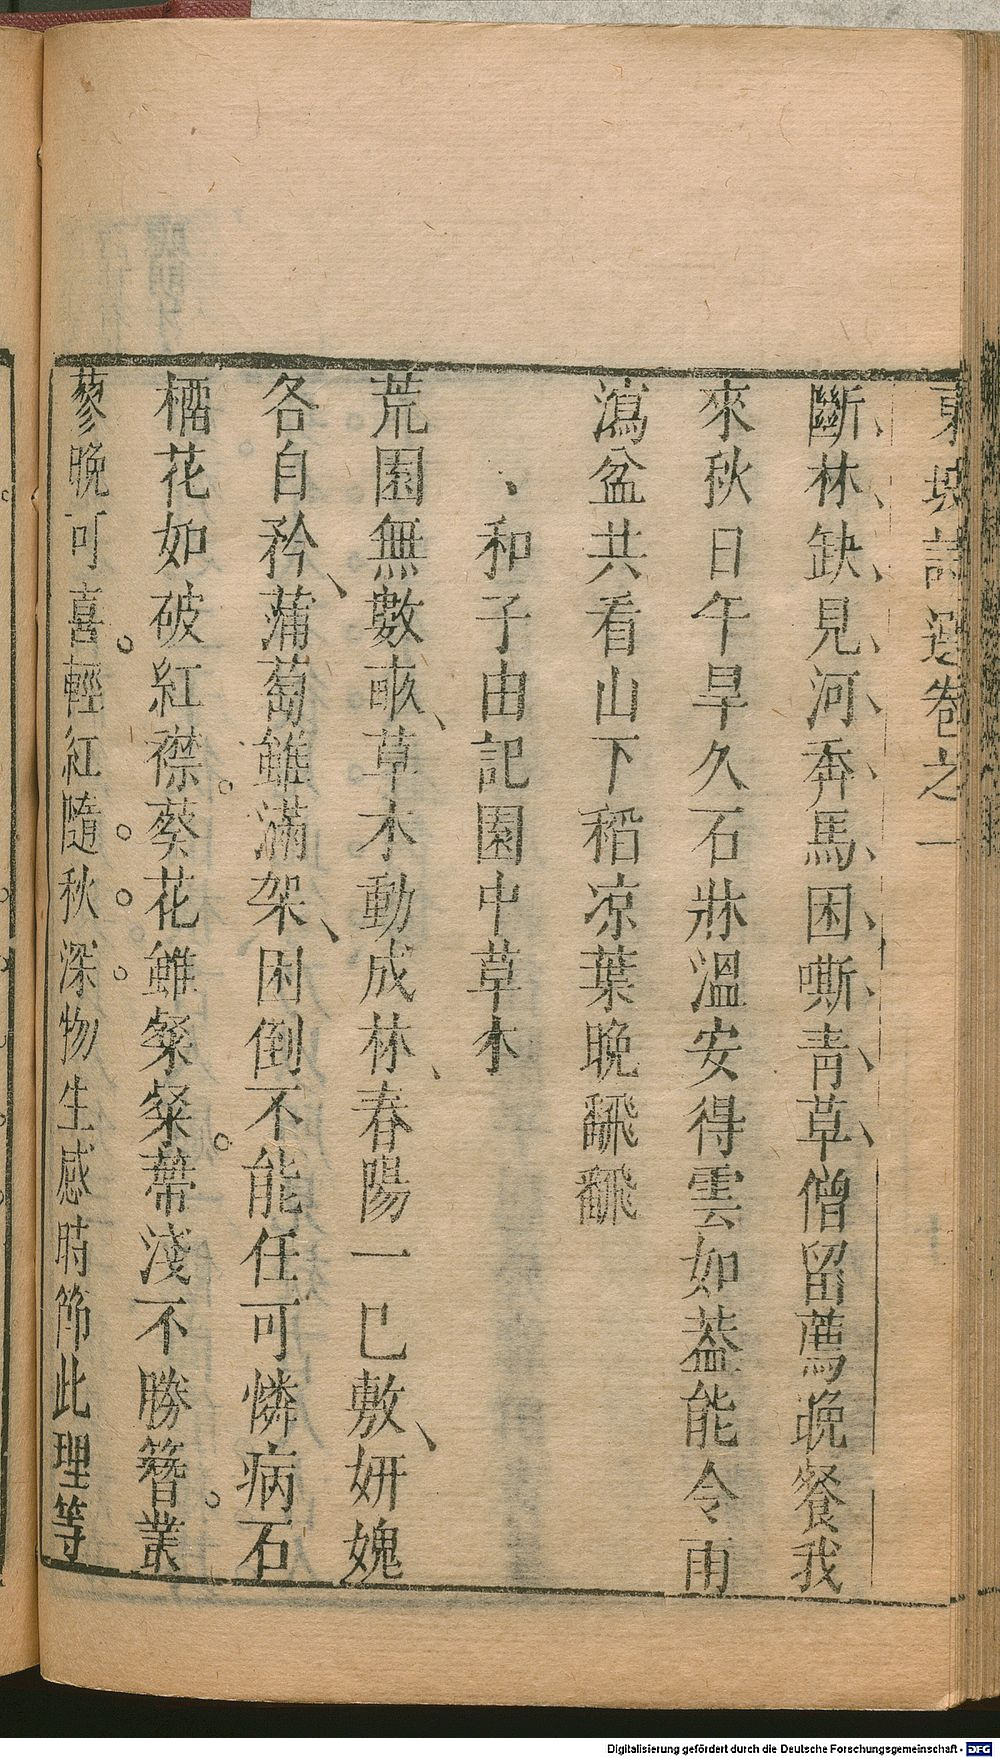 東坡詩選卷之一
斷林缺見河奔馬困嘶青草僧留薦晚餐我
來秋日午旱久石牀溫安得雲如蓋能令雨
瀉盆共看山下稻凉葉晚飜飜
和子由記園中草木
荒園無數畝草木動成林春陽一已敷妍媸
各自矜蒲萄雖滿架困倒不能任可憐病石
榴花如破紅襟葵花雖粲粲蔕淺不勝簪叢
蓼晚可喜輕紅隨秋深物生感時節此理等
Digitalisierung gefördert durch die Deutsche Forschungsgemeinschaft - DFG